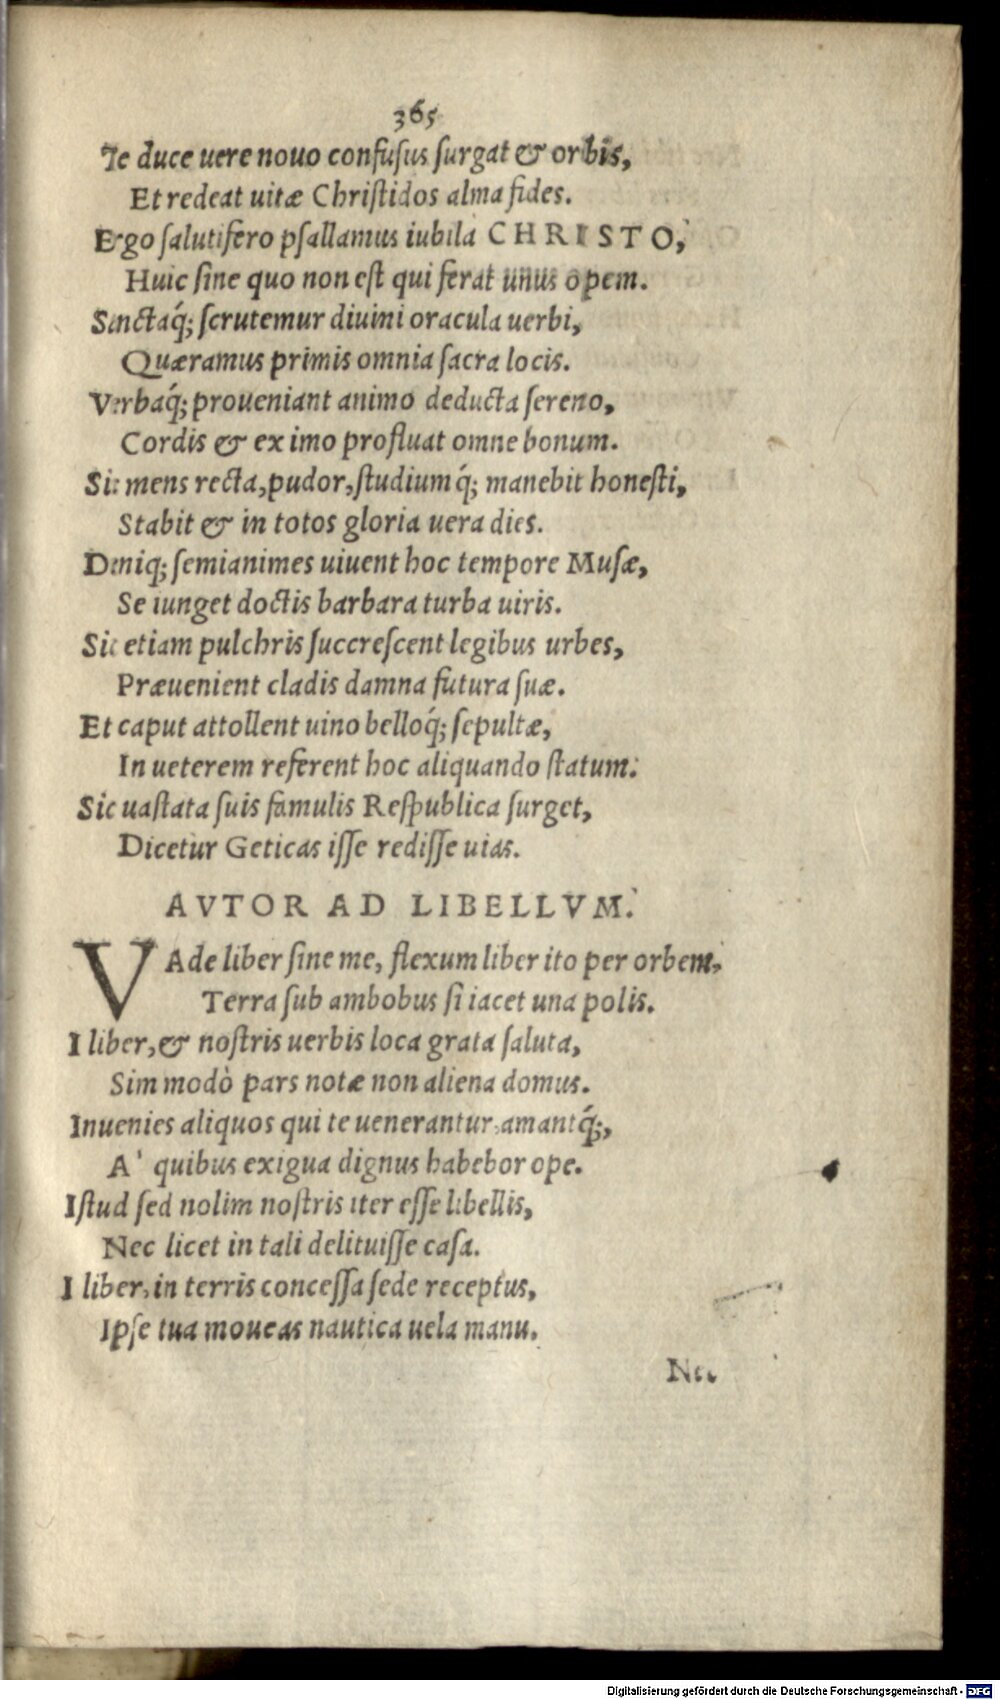 365
Te duce uere nouo confusus surgat & orbis,
Et redeat uitæ Christidos alma fides.
Ergo salutifero psallamus iubila CHRISTO,
Huic sine quo non est qui ferat unus opem.
Sanctaq́; scrutemur diuini oracula uerbi,
Quæramus primis omnia sacra locis.
Verbaq́; proueniant animo deducta sereno,
Cordis & ex imo profluat omne bonum.
Sic mens recta, pudor, studiumq́; manebit honesti,
Stabit & in totos gloria uera dies.
Deniq; semianimes uiuent hoc tempore Musæ,
Se iunget doctis barbara turba uiris.
Sic etiam pulchris succrescent legibus urbes,
Præuenient cladis damna futura suæ.
Et caput attollent uino belloq́; sepultæ,
In ueterem referent hoc aliquando statum.
Sic uastata suis famulis Respublica surget,
Dicetur Geticas isse redisse uias.
AVTOR AD LIBELLVM.
VAde liber sine me, flexum liber ito per orbem,
Terra sub ambobus si iacet una polis.
I liber, & nostris uerbis loca grata saluta,
Sim modò pars notæ non aliena domus.
Inuenies aliquos qui te uenerantur, amantq́;,
A' quibus exigua dignus habebor ope.
Istud sed nolim nostris iter esse libellis,
Nec licet in tali delituisse casa.
I liber, in terris concessa sede receptus,
Ipse tua moueas nautica uela manu.
Nec
Digitalisierung gefördert durch die Deutsche Forschungsgemeinschaft - DFG